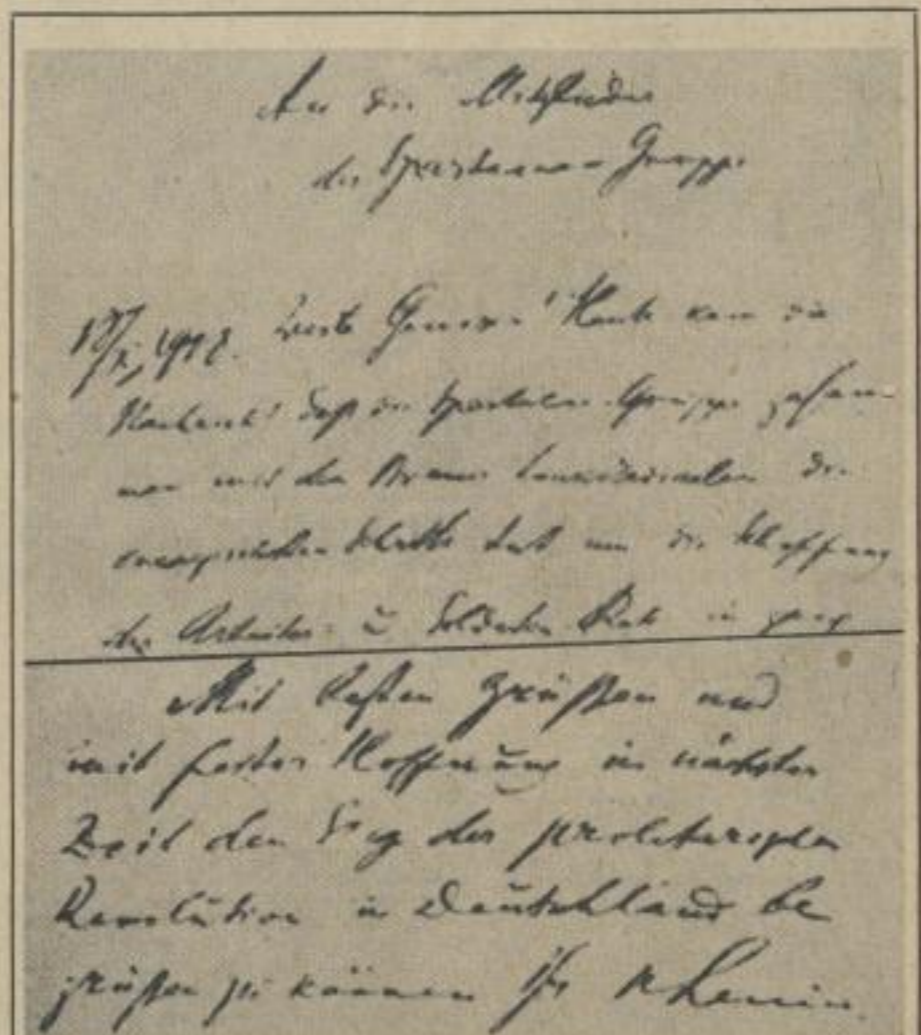 An die Mitglieder
der Spartacus-Gruppe
18/X 1918. Werte Genossen! Heute kam die
Nachricht, daß die Spartacus-Gruppe zusam-
men mit den Bremer Linksradicalen die
energischsten Schritte tut um die Schaffung
der Arbeiter- u Soldaten Räte in ganz
Mit besten Grüßen und
mit fester Hoffnung in nächster
Zeit den Sieg der proletarischen
Revolution in Deutschland be
grüßen zu können Ihr N Lenin